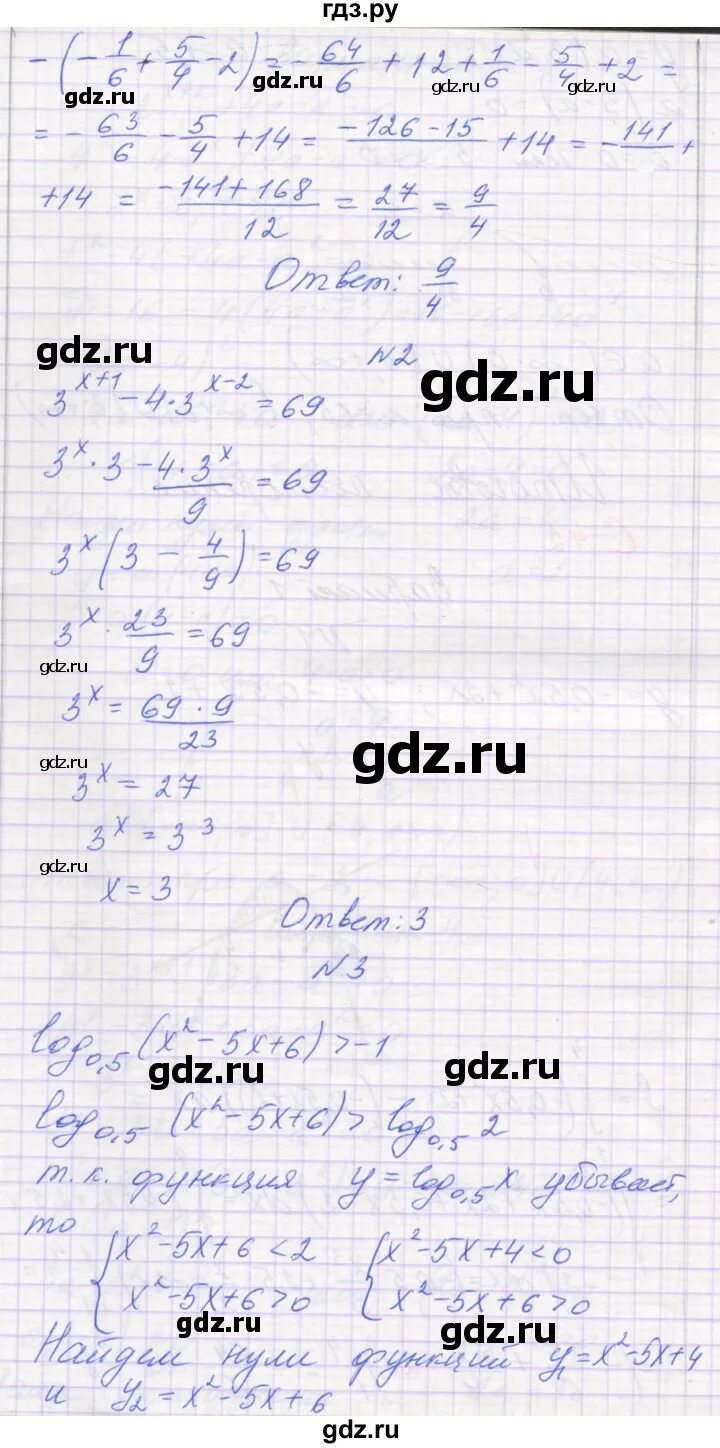 гдз.ру
-(-1/6 + 5/4 - 2) = -64/6 + 12 + 1/6 - 5/4 + 2 =
gdz.ru gdz.ru gdz.ru gdz.ru
= -63/6 - 5/4 + 14 = (-126 - 15)/ + 14 = -141/ +
+14 = (-141 + 168)/12 = 27/12 = 9/4
Ответ: 9/4
gdz.ru
N2
gdz.ru
3^(x+1) - 4·3^(x-2) = 69
3^x · 3 - (4·3^x)/9 = 69
3^x (3 - 4/9) = 69
3^x · 23/9 = 69
gdz.ru
3^x = (69·9)/23
gdz.ru
gdz.ru
3^x = 27
3^x = 3^3
gdz.ru
x = 3
Ответ: 3
N3
log_0,5 (x² - 5x + 6) > -1
gdz.ru gdz.ru
log_0,5 (x² - 5x + 6) > log_0,5 2
т.к. функция y = log_0,5 x убывает,
то { x² - 5x + 6 < 2 { x² - 5x + 4 < 0
x² - 5x + 6 > 0 x² - 5x + 6 > 0
gdz.ru gdz.ru
Найдем нули функций y₁ = x² - 5x + 4
и y₂ = x² - 5x + 6
gdz.ru